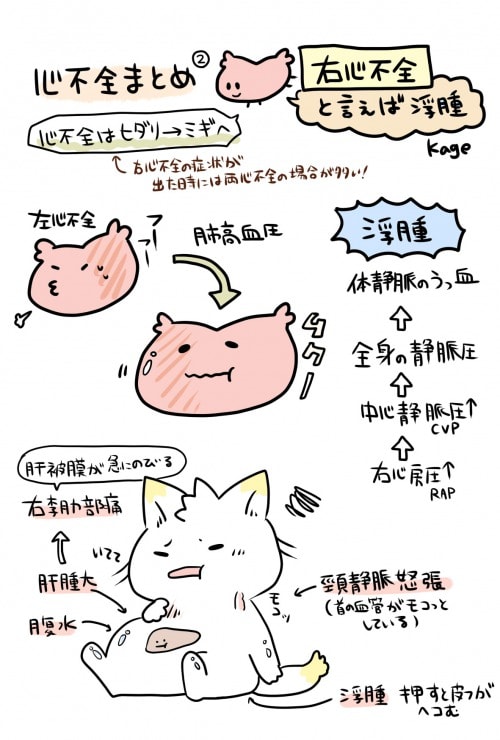 心不全まとめ②
右心不全
と言えば浮腫
Kage
心不全はヒダリ→ミギへ
右心不全の症状が
出た時には両心不全の場合が多い!
左心不全
フーフー
肺高血圧
ムクー
浮腫
体静脈のうっ血
全身の静脈圧
中心静脈圧↑
CVP
右心房圧↑
RAP
肝被膜が急にのびる
右季肋部痛
肝腫大
腹水
いてて
モコッ
頸静脈怒張
(首の血管がモコっと
している)
浮腫 押すと皮フが
ヘコむ